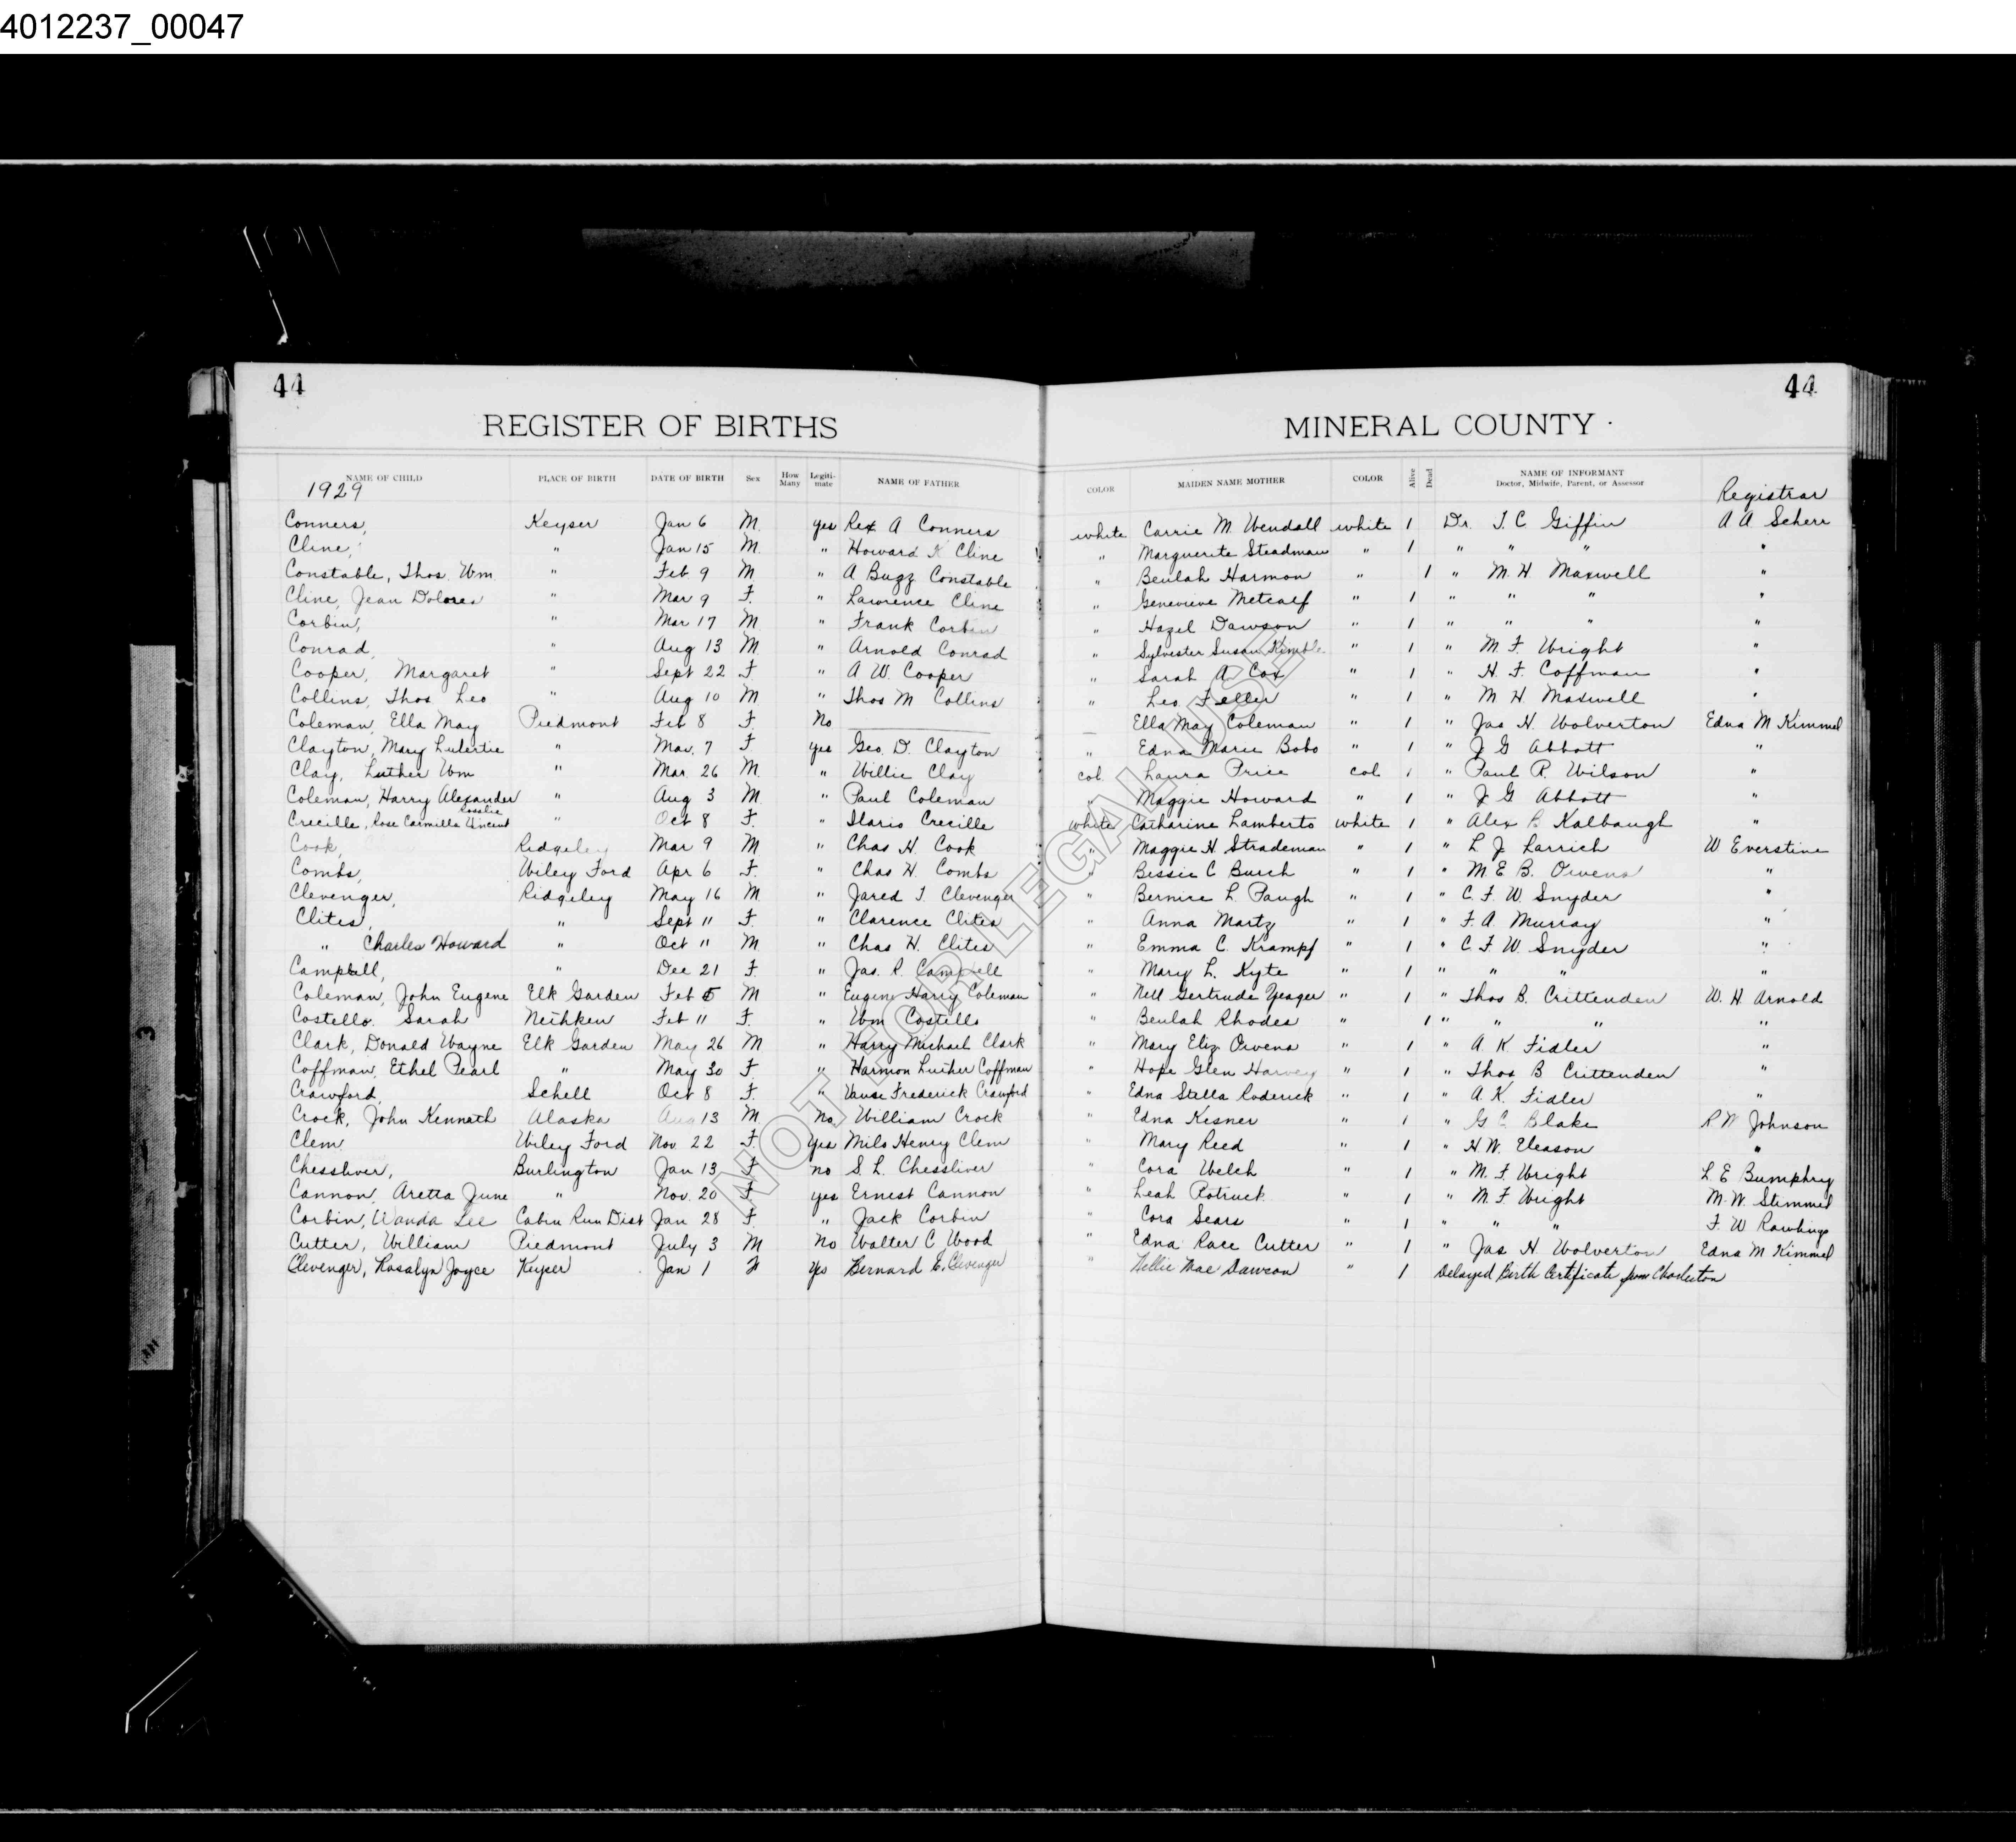 4012237_00047
44 44
REGISTER OF BIRTHS MINERAL COUNTY
NAME OF CHILD PLACE OF BIRTH DATE OF BIRTH Sex How Many Legiti-mate NAME OF FATHER COLOR MAIDEN NAME MOTHER COLOR Alive Dead NAME OF INFORMANT Doctor, Midwife, Parent, or Assessor Registrar
1929
Conners, Keyser Jan 6 M. yes Rex A Conners white Carrie M. Wendall white 1 Dr. T. C. Giffin A A Scherr
Cline, " Jan 15 M. " Howard K Cline " Marguerite Steadman " 1 " " " "
Constable, Thos. Wm " Feb. 9 M " A Bugz Constable " Beulah Harmon " 1 " M. H. Maxwell "
Cline, Jean Dolores " Mar 9 F. " Lawrence Cline " Genevieve Metcalf " 1 " " " "
Corbin, " Mar 17 M. " Frank Corbin " Hazel Dawson " 1 " " " "
Conrad, " Aug 13 M. " Arnold Conrad " Sylvester Susan Kimble " 1 " M. F. Wright "
Cooper, Margaret " Sept 22 F. " A W. Cooper " Sarah A. Cox " 1 " H. F. Coffman "
Collins, Thos Leo " Aug 10 M " Thos M Collins " Leo Feller " 1 " M H Maxwell "
Coleman, Ella May Piedmont Feb 8 F. No Ella May Coleman " 1 " Jas H. Wolverton Edna M Kimmel
Clayton, Mary Lulertie " Mar. 7 F yes Geo. D. Clayton " Edna Marie Bobo " 1 " J G Abbott "
Clay, Luther Wm " Mar. 26 M. " Willie Clay col. Laura Price col 1 " Paul R. Wilson "
Coleman, Harry Alexander " Aug 3 M " Paul Coleman " Maggie Howard " 1 " J G Abbott "
Crecille, Rose Carmilla Rosalie Vincent " Oct 8 F. " Ilario Crecille white Catharine Lamberto white 1 " Alex P. Kalbaugh "
Cook, Ridgeley Mar 9 M " Chas H. Cook " Maggie H. Strademan " 1 " L J Larrich W Everstine
Combs, Wiley Ford Apr 6 F. " Chas H. Combs " Bessie C Burch " 1 " M. E B. Owens "
Clevenger, Ridgeley May 16 M " Jared T. Clevenger " Bernice L. Paugh " 1 " C. F. W. Snyder "
Clites, " Sept 11 F. " Clarence Clites " Anna Martz " 1 " F. A. Murray "
" Charles Howard " Oct 11 M " Chas H. Clites " Emma C. Krampf " 1 " C. F. W. Snyder "
Campbell, " Dec 21 F. " Jas. R. Campbell " Mary L. Kyte " 1 " " " "
Coleman, John Eugene Elk Garden Feb 5 M " Eugene Harry Coleman " Nell Gertrude Yeager " 1 " Thos B. Crittenden W. H. Arnold
Costello. Sarah Nethken Feb 11 F. " Wm Costello " Beulah Rhodes " 1 " " " "
Clark, Donald Wayne Elk Garden May 26 M " Harry Michael Clark " Mary Eliz Owens " 1 " A K Fidler "
Coffman, Ethel Pearl " May 30 F. " Harmon Luther Coffman " Hope Glen Harvey " 1 " Thos B Crittenden "
Crawford, Schell Oct 8 F. " Vause Frederick Crawford " Edna Stella Roderick " 1 " A. K. Fidler "
Crock, John Kennath Alaska Aug 13 M. No William Crock " Edna Kesner " 1 " G C Blake R W Johnson
Clem. Wiley Ford Nov. 22 F. Yes Milo Henry Clem " Mary Reed " 1 " H. W. Eleason "
Chessliver, Burlington Jan 13 F no S. L. Chessliver " Cora Welch " 1 " M. F. Wright L. E Bumphrey
Cannon, Aretta June " Nov. 20 F. yes Ernest Cannon " Leah Rotruck " 1 " M. F. Wright M. W. Stimmel
Corbin, Wanda Lee Cabin Run Dist Jan 28 F. " Jack Corbin " Cora Sears " 1 " " " F. W Rawlings
Cutter, William Piedmont July 3 M No Walter C Wood " Edna Race Cutter " 1 " Jas H. Wolverton Edna M Kimmel
Clevenger, Rosalyn Joyce Keyser Jan 1 F Yes Bernard C. Clevenger " Nellie Mae Dawson " 1 Delayed Birth Certificate from Charleston
NOT FOR LEGAL USE